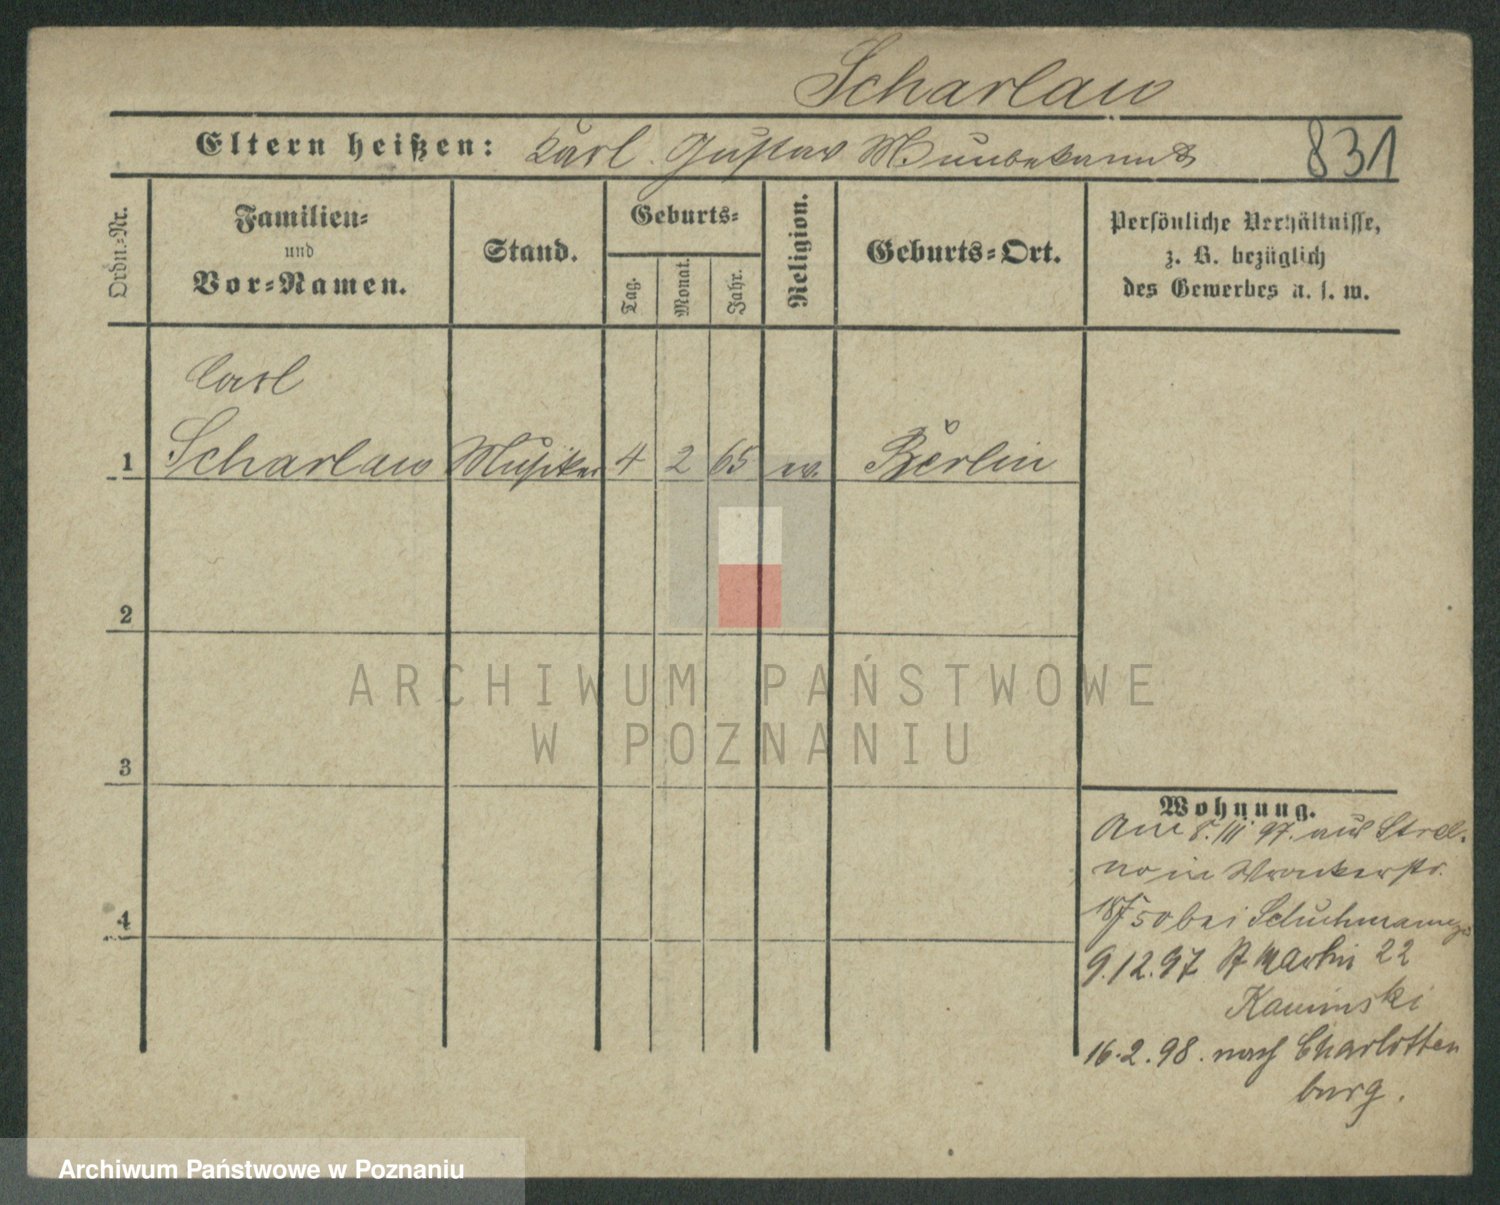 Scharlau
Eltern heißen: Karl Gustav M unbekannt 831
Ordn.-Nr.
Familien-
und
Vor-Namen.
Stand.
Geburts-
Tag.
Monat.
Jahr.
Religion.
Geburts-Ort.
Persönliche Verhältnisse,
z. B. bezüglich
des Gewerbes u. s. w.
Carl
1 Scharlau Musiker 4 2 65 ev. Berlin
2
3
4
Wohnung.
Am 8. III 97. aus Strel-
no in Wronkerstr.
bei Schuhmann
9.12.97 St Martin 22
Kaminski
16.2.98. nach Charlotten
burg.
ARCHIWUM PAŃSTWOWE
W POZNANIU
Archiwum Państwowe w Poznaniu